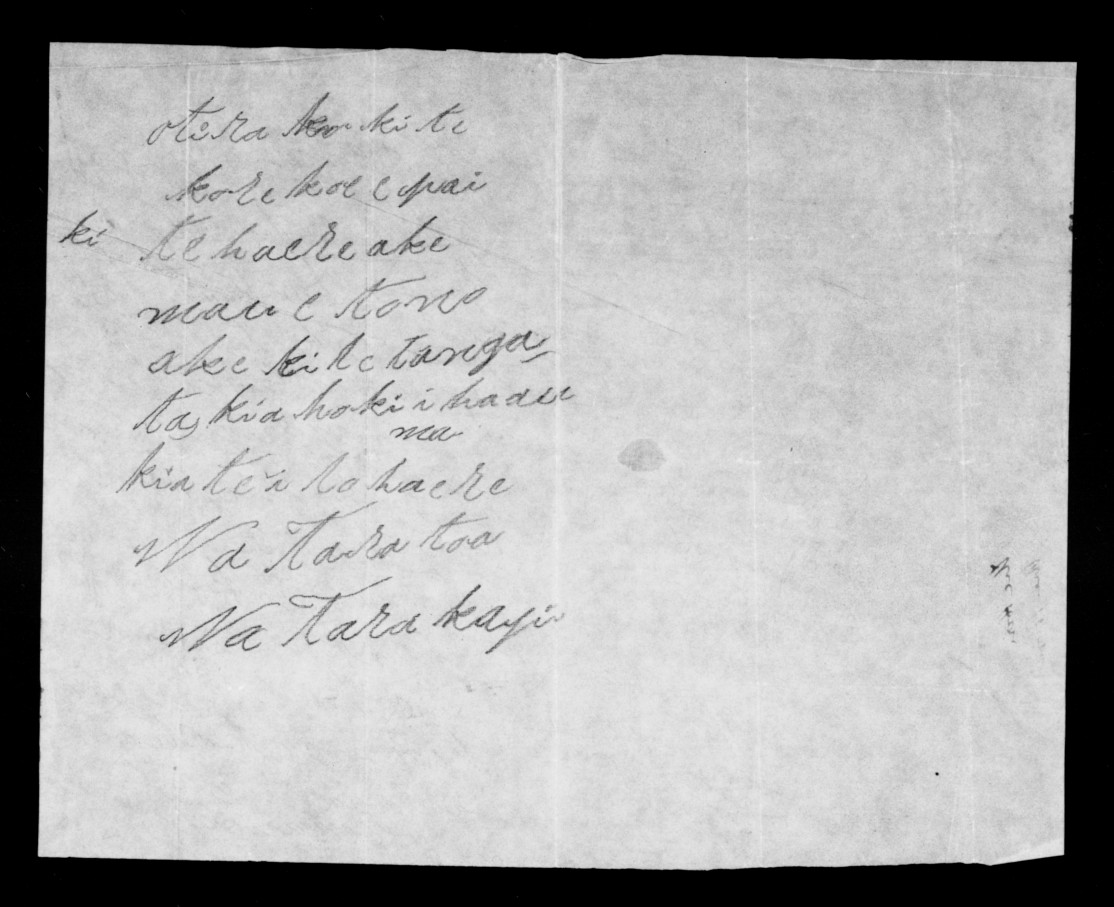 otira ko ki te
kore koe e pai
ki te haere ake
mau e tono
ake ki te tanga
ta, kia hoki i haau
ma
kia tei to haere
Na Tara toa
Na Tara